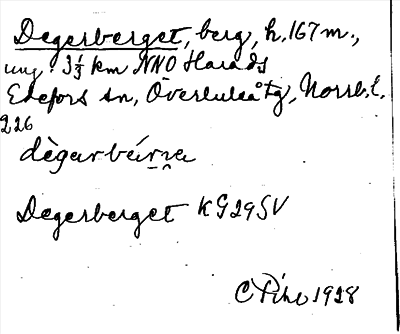 Degerberget, berg, h. 167 m.,
ung. 3 1/3 km NNO Harads
Edefors sn, Överluleå tg, Norrb. l.
226
dègarbárna
Degerberget KG29SV
C Pihl 1928